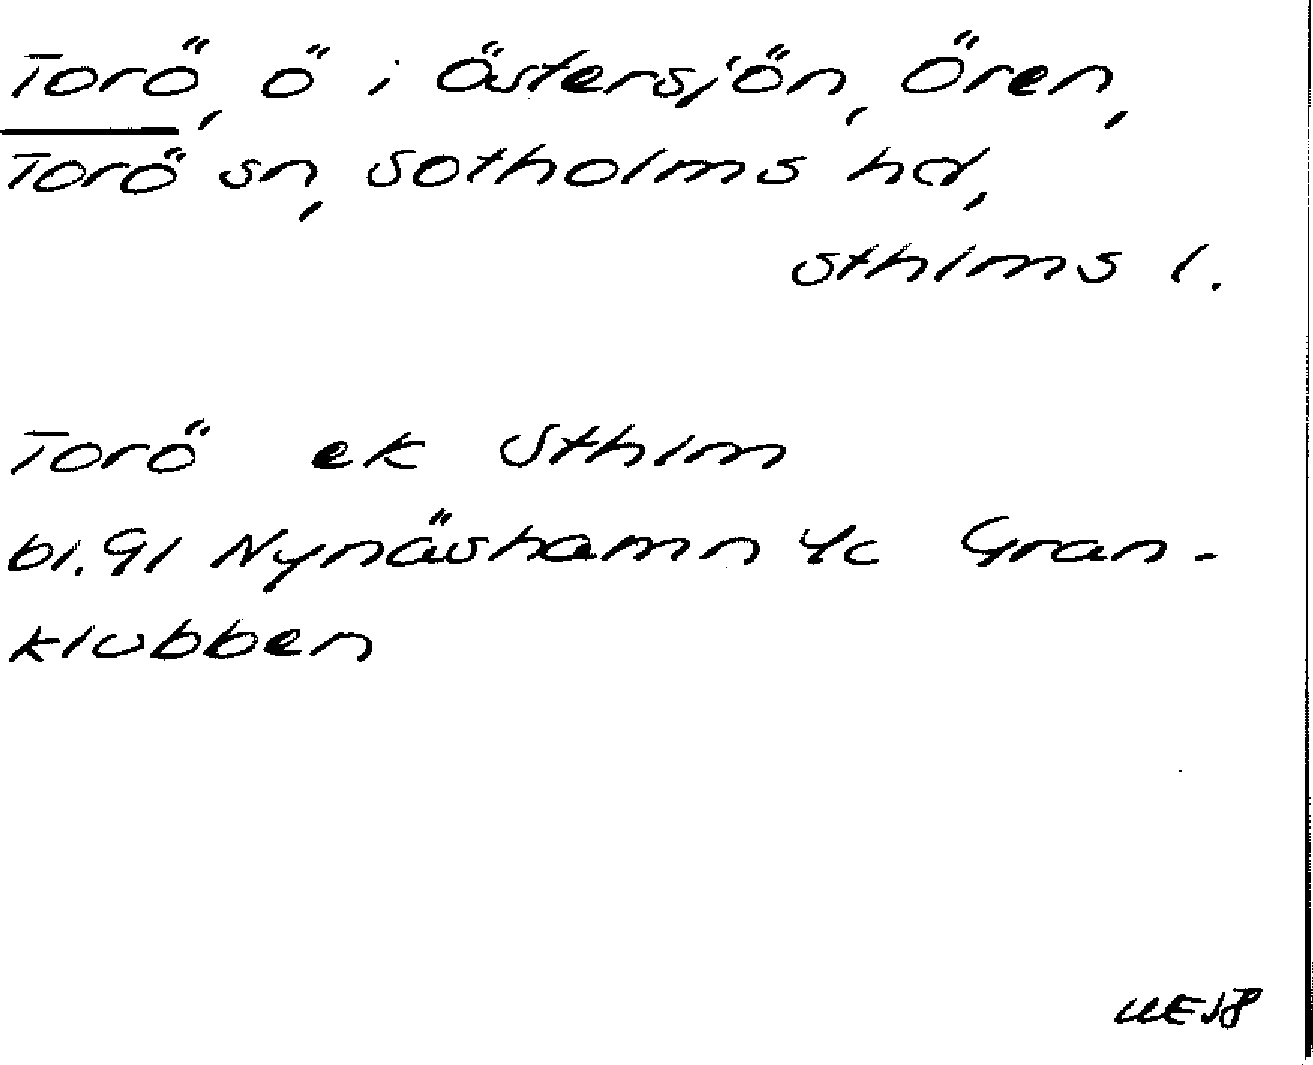 Torö, ö i Östersjön, Ören,
Torö sn, Sotholms hd,
Sthlms l.
Torö ek Sthlm
bl. 91 Nynäshamn 4c Gran-
klubben